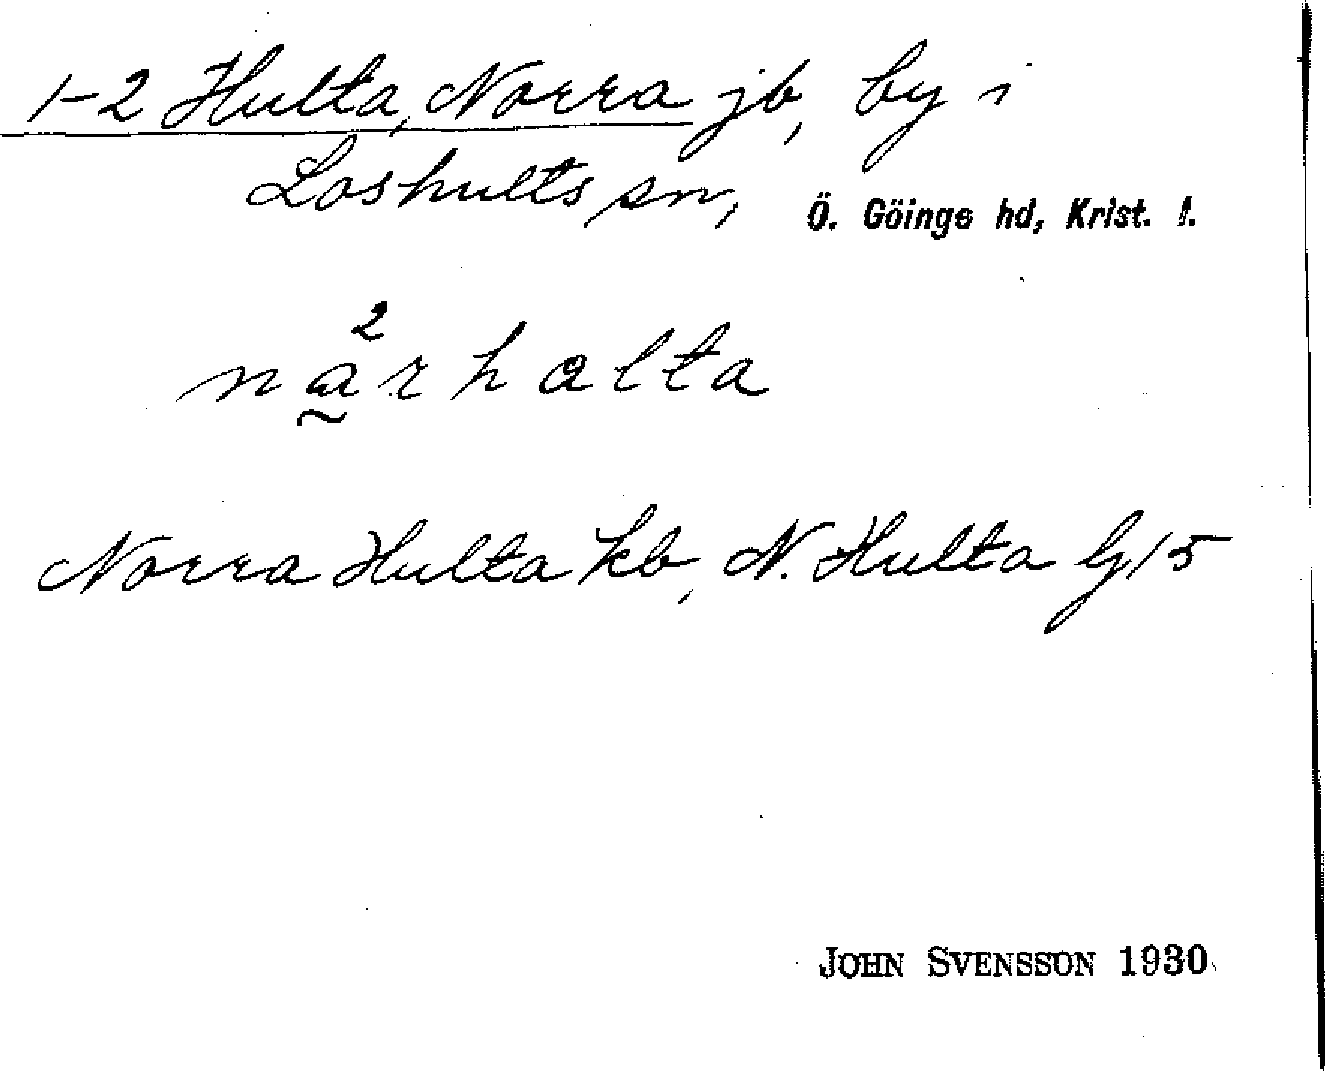 1-2 Hulta, Norra jb, by i
Loshults sn, Ö. Göinge hd, Krist. l.
2
narhalta
Norra Hulta kb, N. Hulta
JOHN SVENSSON 1930